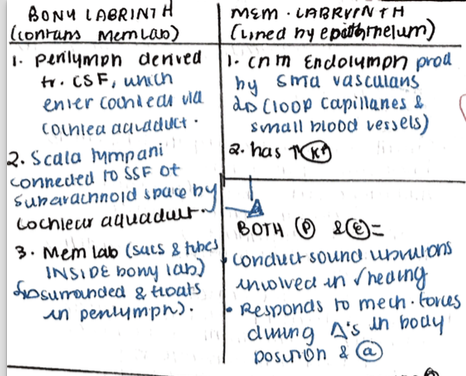 BONY LABRINTH
(contains Mem Lab)
1. perilymph derived
fr. CSF, which
enter cochlea via
cochlea aquaduct.
2. Scala tympani
connected to SSF of
subarachnoid space by
cochlear aquaduct.
3. Mem lab (sacs & tubes
INSIDE bony lab)
surrounded & floats
in perilymph).
MEM. LABRYNTH
(lined by epithelium)
1. Endolymph prod
by
(loop capillaries &
small blood vessels)
2. has ↑K⁺
BOTH (P) & (E) =
• conduct sound vibrations
involved in hearing
• Responds to mech. forces
during Δ's in body
position & (a)